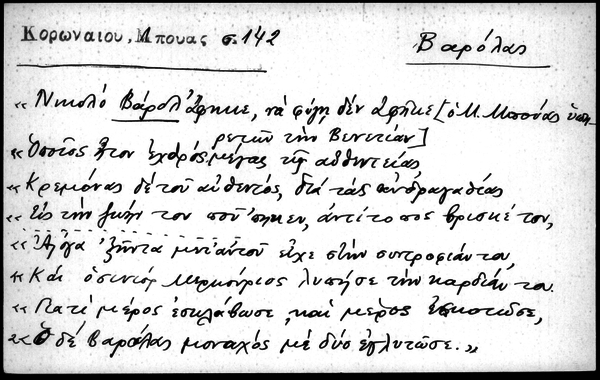 Κορωναιου, Μπουας σ. 142
Βαρόλας
« Νικολό Βάρολ ἄφηκε, νὰ φύγῃ δέν ἀφῆκε [ὁ Μ. Μπούας ὑπη-
ρετῶν τὴν Βενετίαν]
« Ὁποῖος ἦτον ἐχθρός μέγας τῆς αὐθεντείας
« Κρεμόνας δέ τοῦ αὐθεντός, διά τάς ἀνδραγαθίας
« Εἰς τήν ζωήν του ποὔπηκεν, ἀντίτοπος βρισκέτον,
« Ἄλογα ἑξῆντα μετ' αὐτοῦ εἶχε στήν συντροφιάν του,
« Καί ὁ σινιόρ Μερκούριος λυπήσε τήν καρδιάν του.
« Γιατί μέρος ἐσκλάβωσε, καί μέρος ἐσκότωσε,
« Ὁ δέ Βαρόλας μοναχός μέ δύο ἐγλύτωσε. »